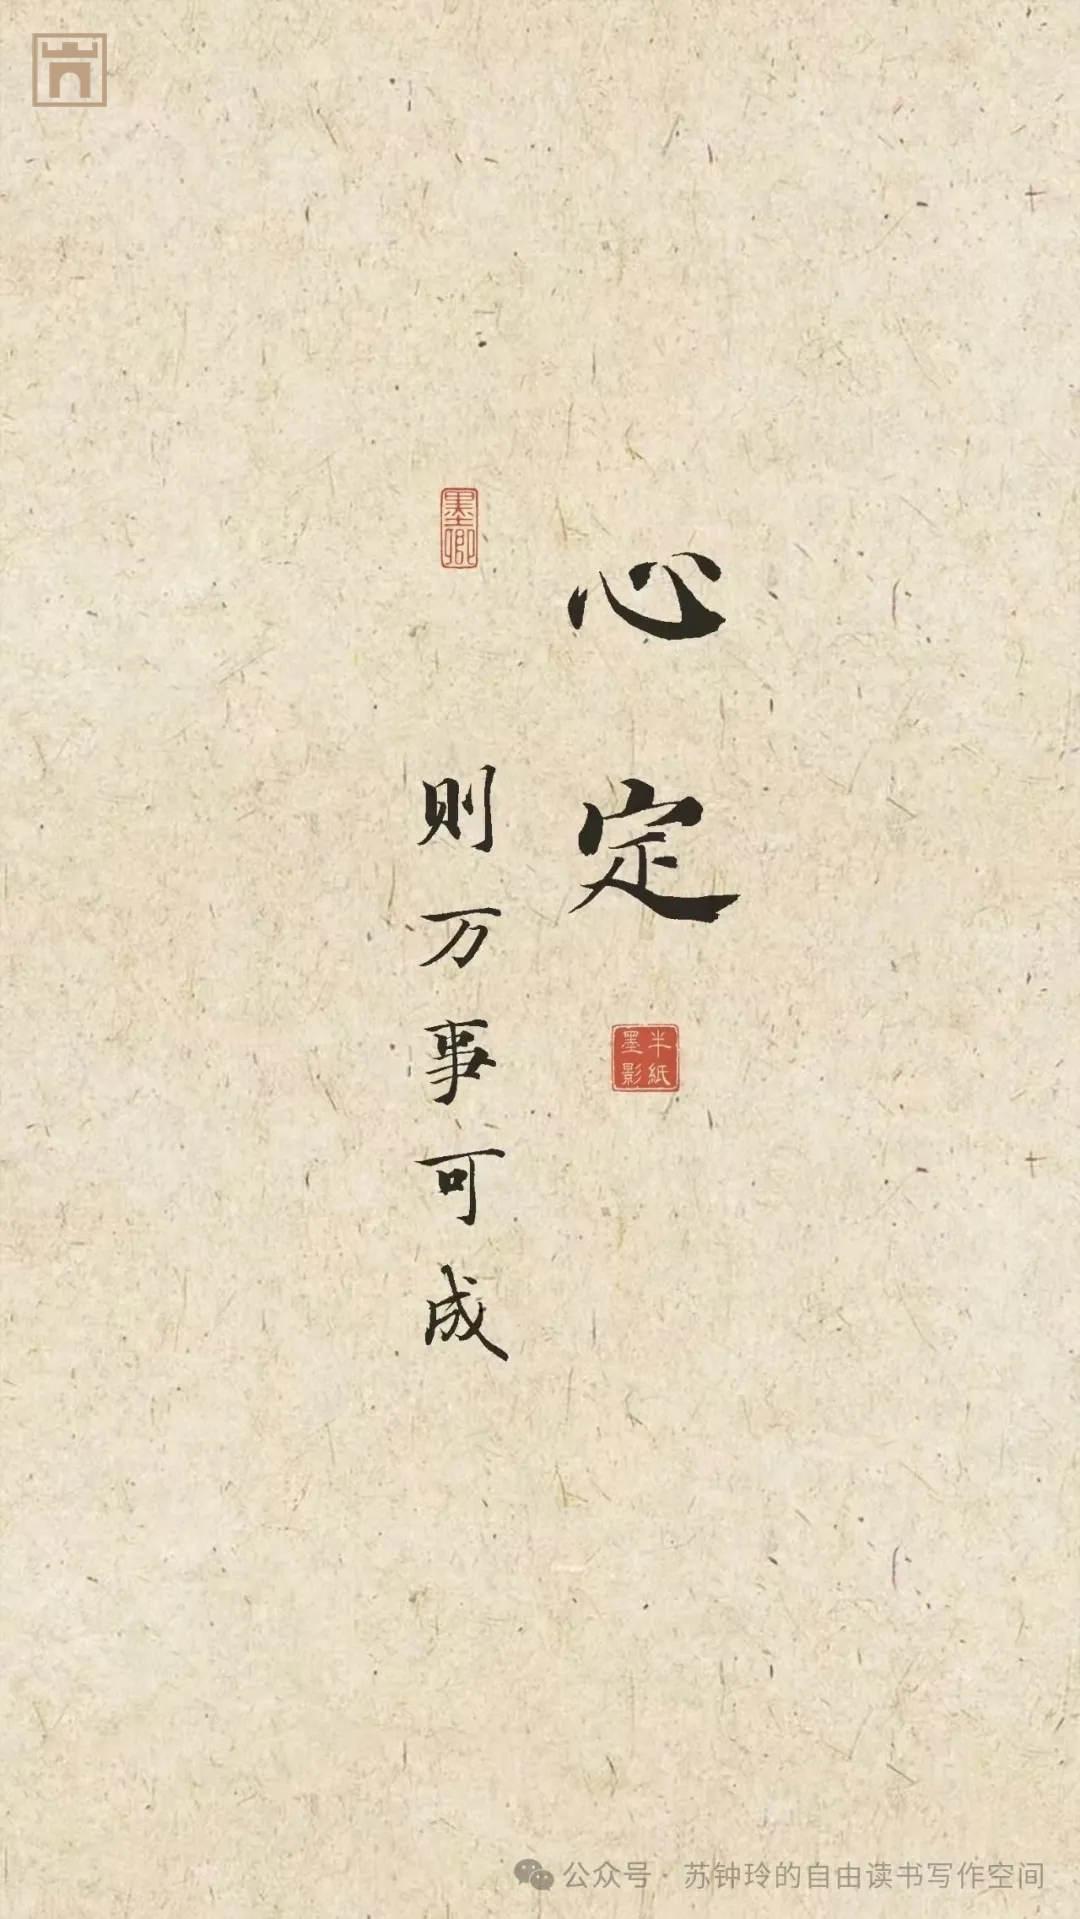 心定
半紙墨影
墨卿
则万事可成
公众号 · 苏钟玲的自由读书写作空间